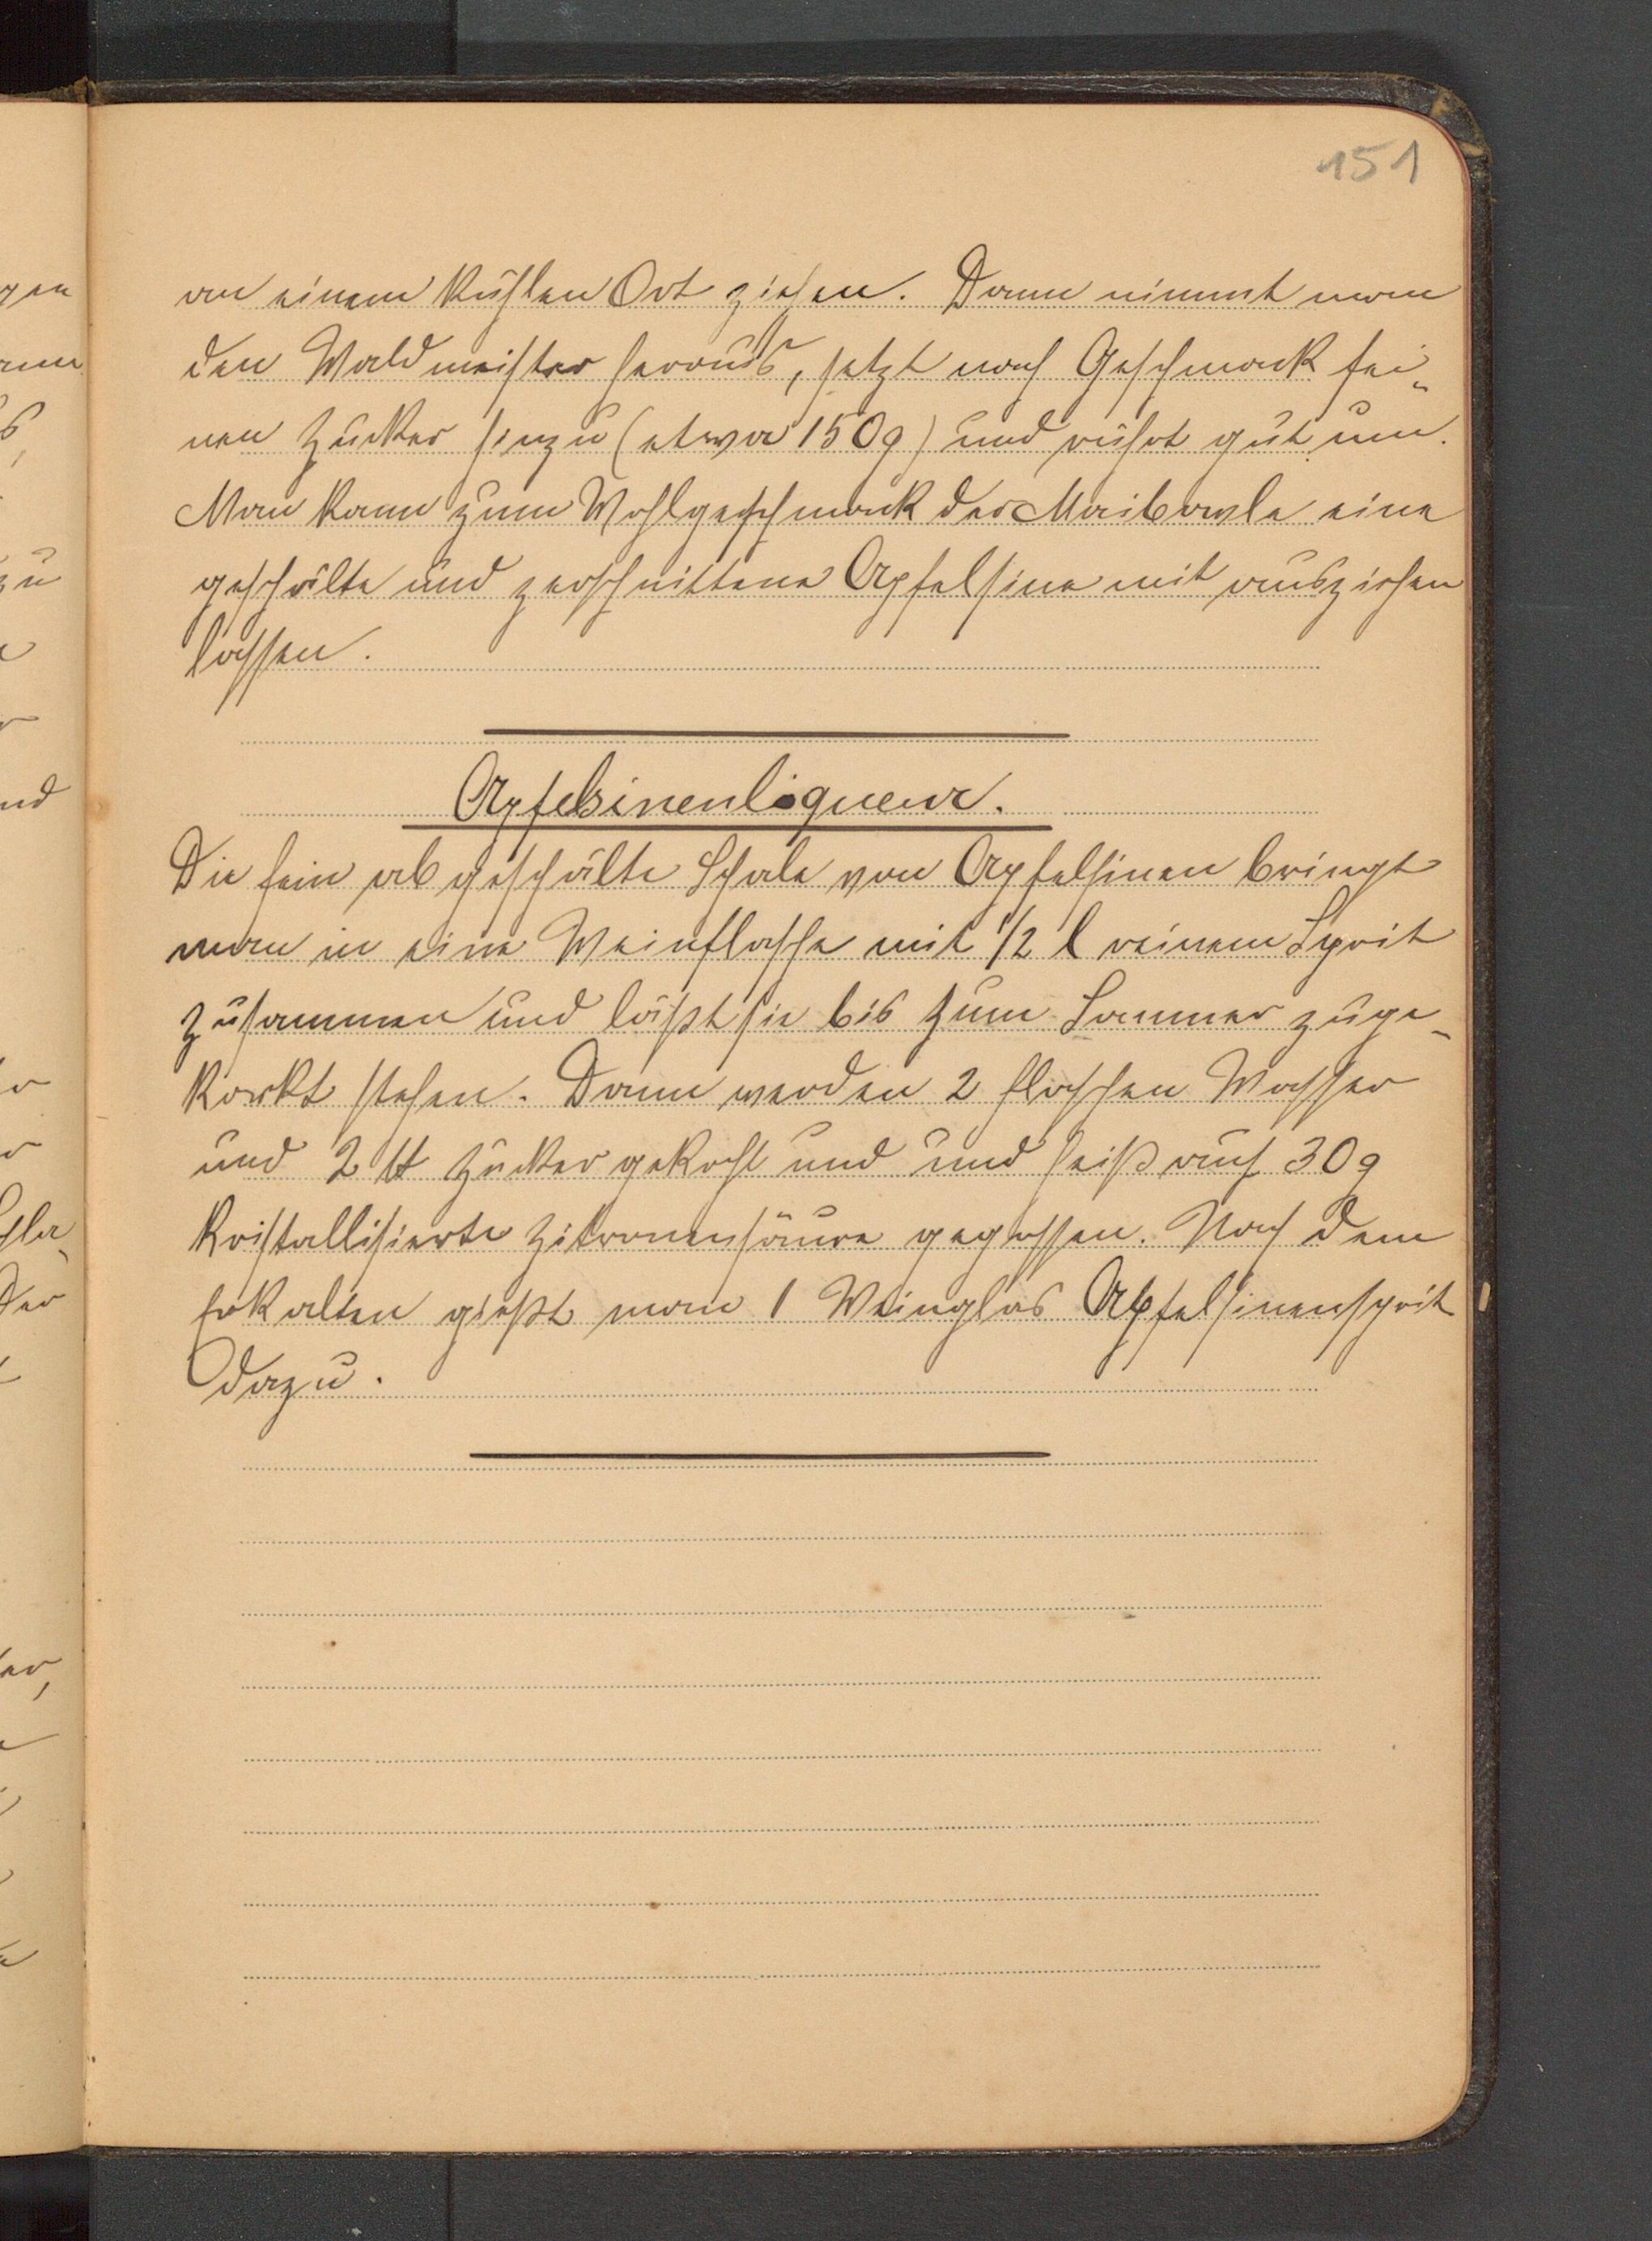 151
an einem kühlen Ort ziehen. Dann nimmt man
den Waldmeister heraus, setzt nach Geschmack fei-
nen Zucker hinzu (etwa 150g) und rührt gut um.
Man kann zum Wohlgeschmack der Maibowle eine
geschälte und zerschnittene Apfelsine mit ausziehen
lassen.
Apfelsinenliqueur.
Die fein abgeschälte Schale von Apfelsinen bringt
man in eine Weinflasche mit 1/2 l reinem Sprit
zusammen und läßt sie bis zum Sommer zuge-
korkt stehen. Dann werden 2 Flaschen Wasser
und 2 ℔ Zucker gekocht und und heiß auf 30g
kristallisierte Zitronensäure gegossen. Nach dem
Erkalten gießt man 1 Weinglas Apfelsinensprit
dazu.